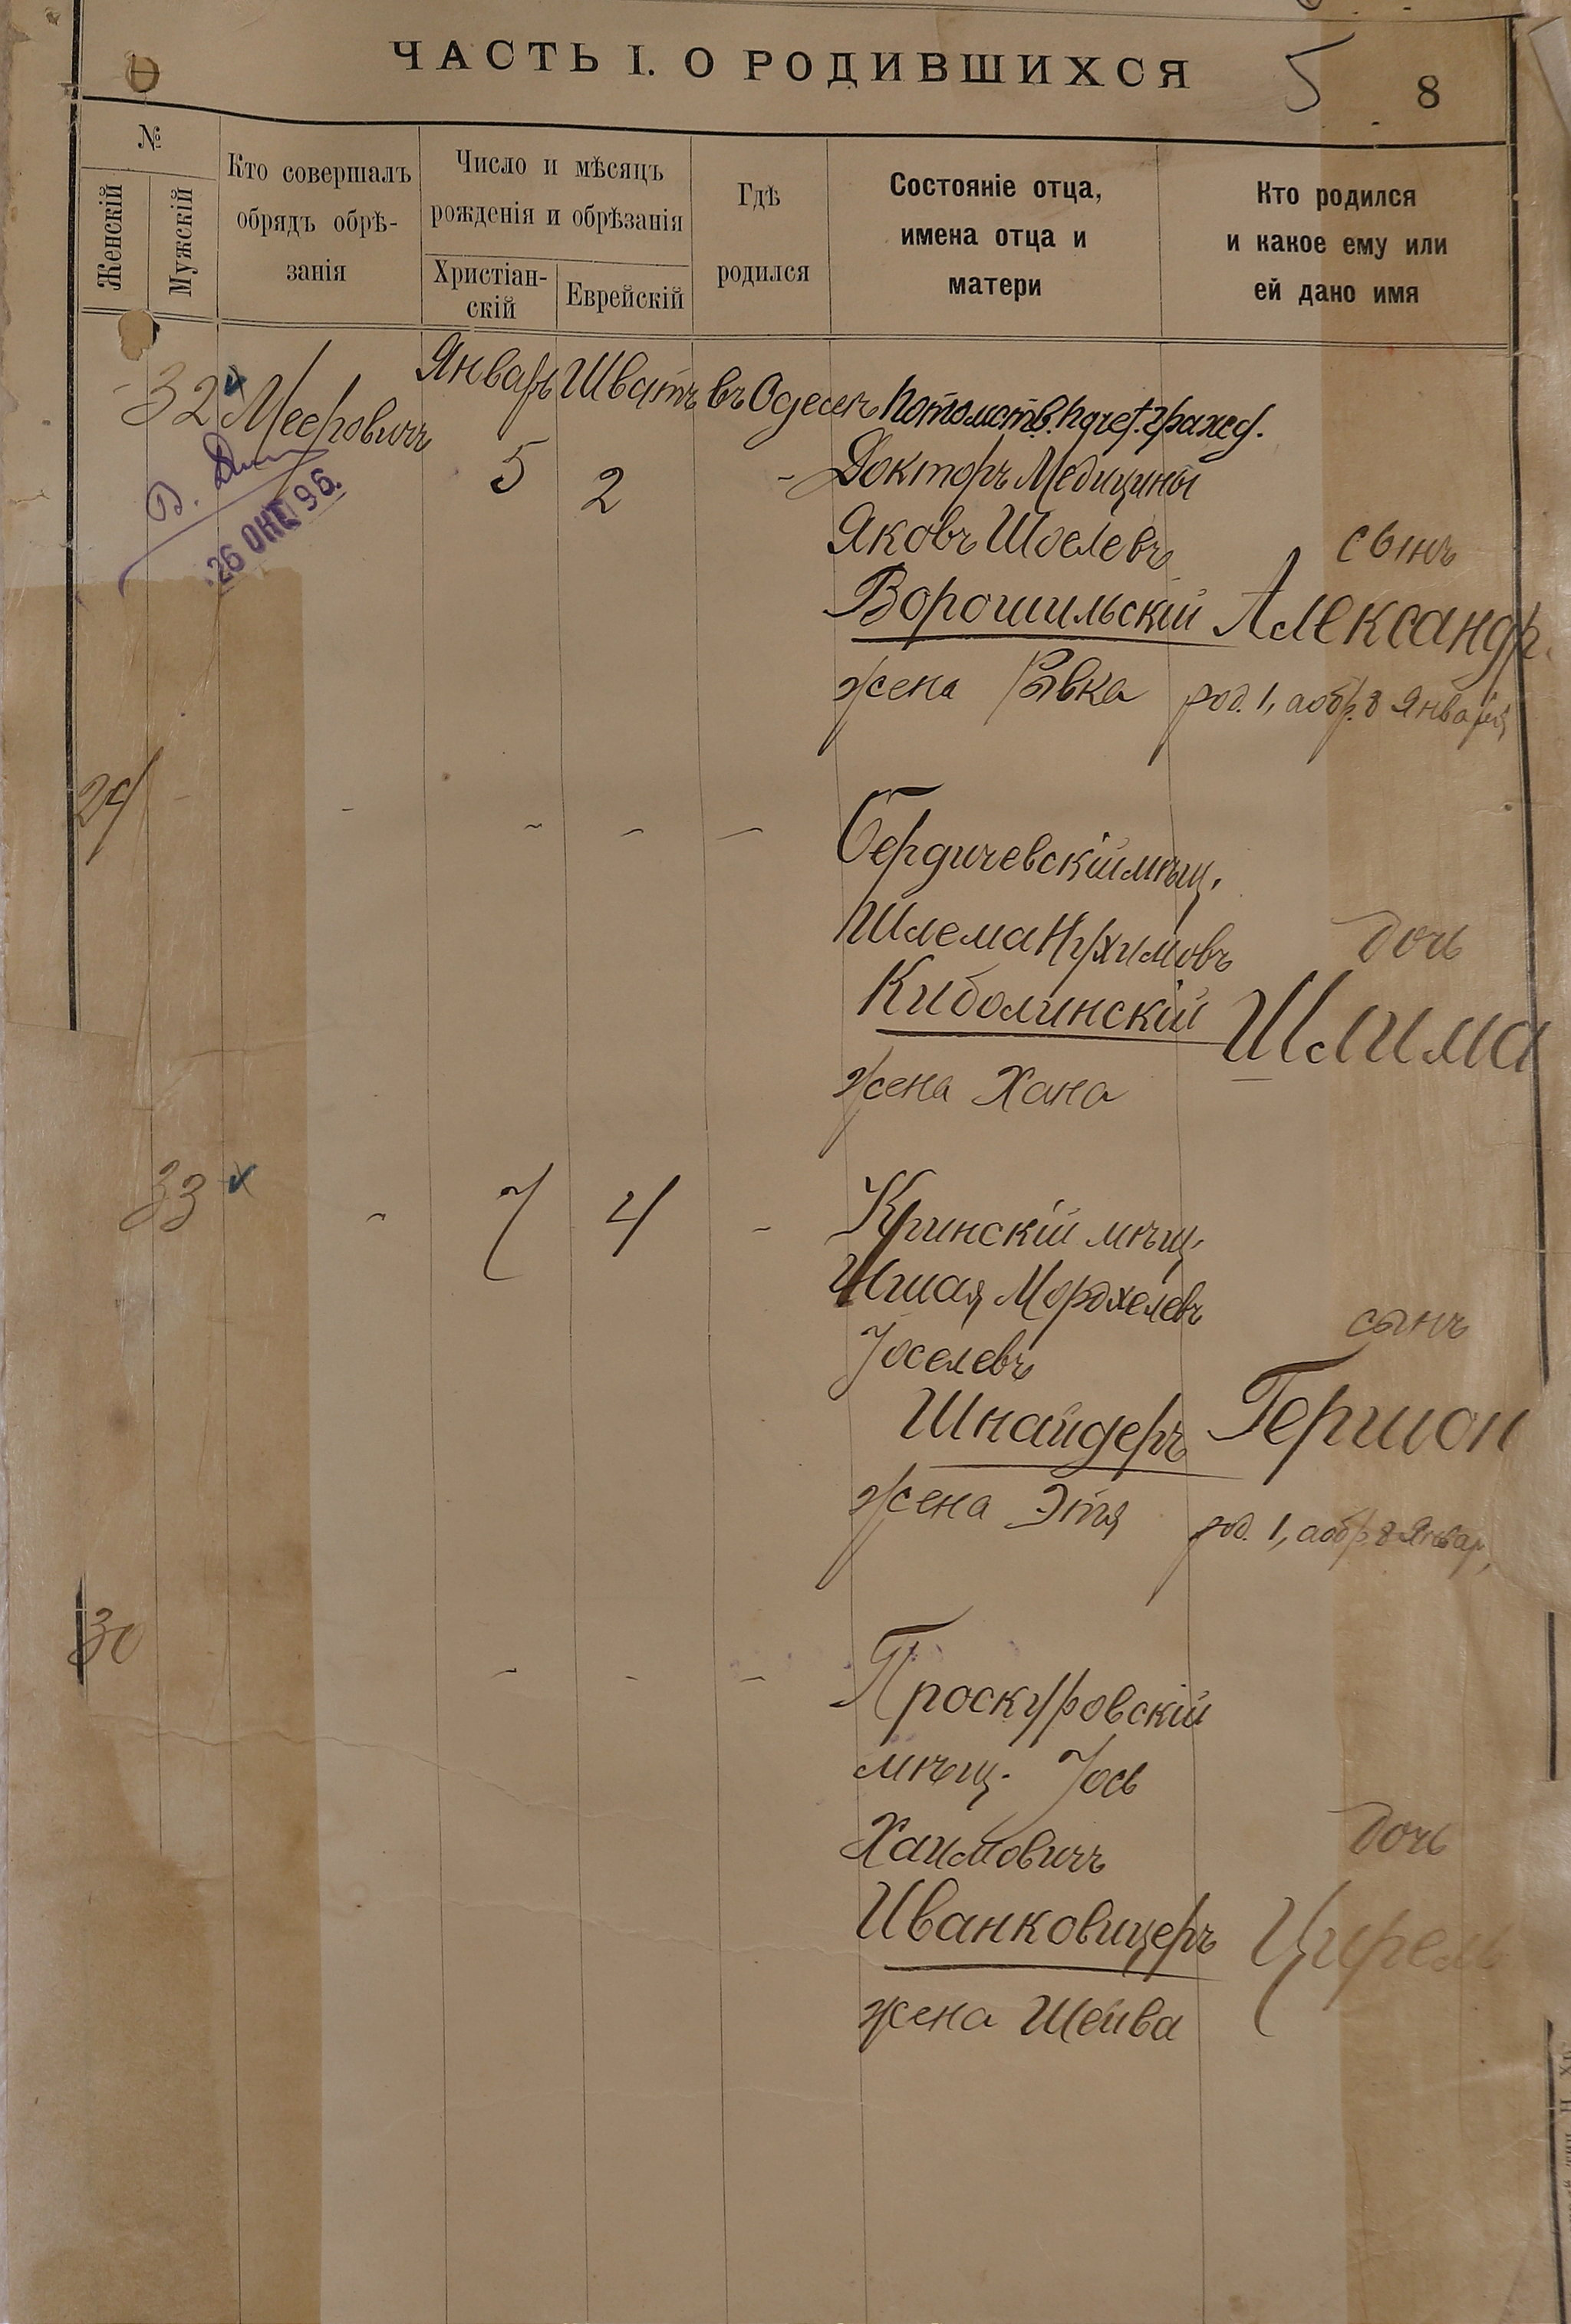 ЧАСТЬ I. О РОДИВШИХСЯ
5
8
№
Женскій
Мужскій
Кто совершалъ
обрядъ обрѣ-
занія
Число и мѣсяцъ
рожденія и обрѣзанія
Христіан-
скій
Еврейскій
Гдѣ
родился
Состояніе отца,
имена отца и
матери
Кто родился
и какое ему или
ей дано имя
32 Мееровичъ Январь Шватъ въ Одессѣ Потомств. Почет. гражд.
5 2 - Докторъ Медицины
26 ОКТ 96.
Яковъ Шоелевъ сынъ
Ворошильскій Александръ
жена Рывка род. 1, а обр. 8 Января
29 - - - - Бердичевскій мѣщ.
Шлема Нухимовъ дочь
Киболинскій Шлима
жена Хана
33 - 7 4 - Кринскій мѣщ.
Ишая Мордхелевъ
Іоселевъ сынъ
Шнайдеръ Гершон
жена Этя род. 1, а обр. 8 Январ,
30 - - - Проскуровскій
мѣщ. Іось
Хаимовичъ дочь
Иванковицеръ Цирель
жена Шейва